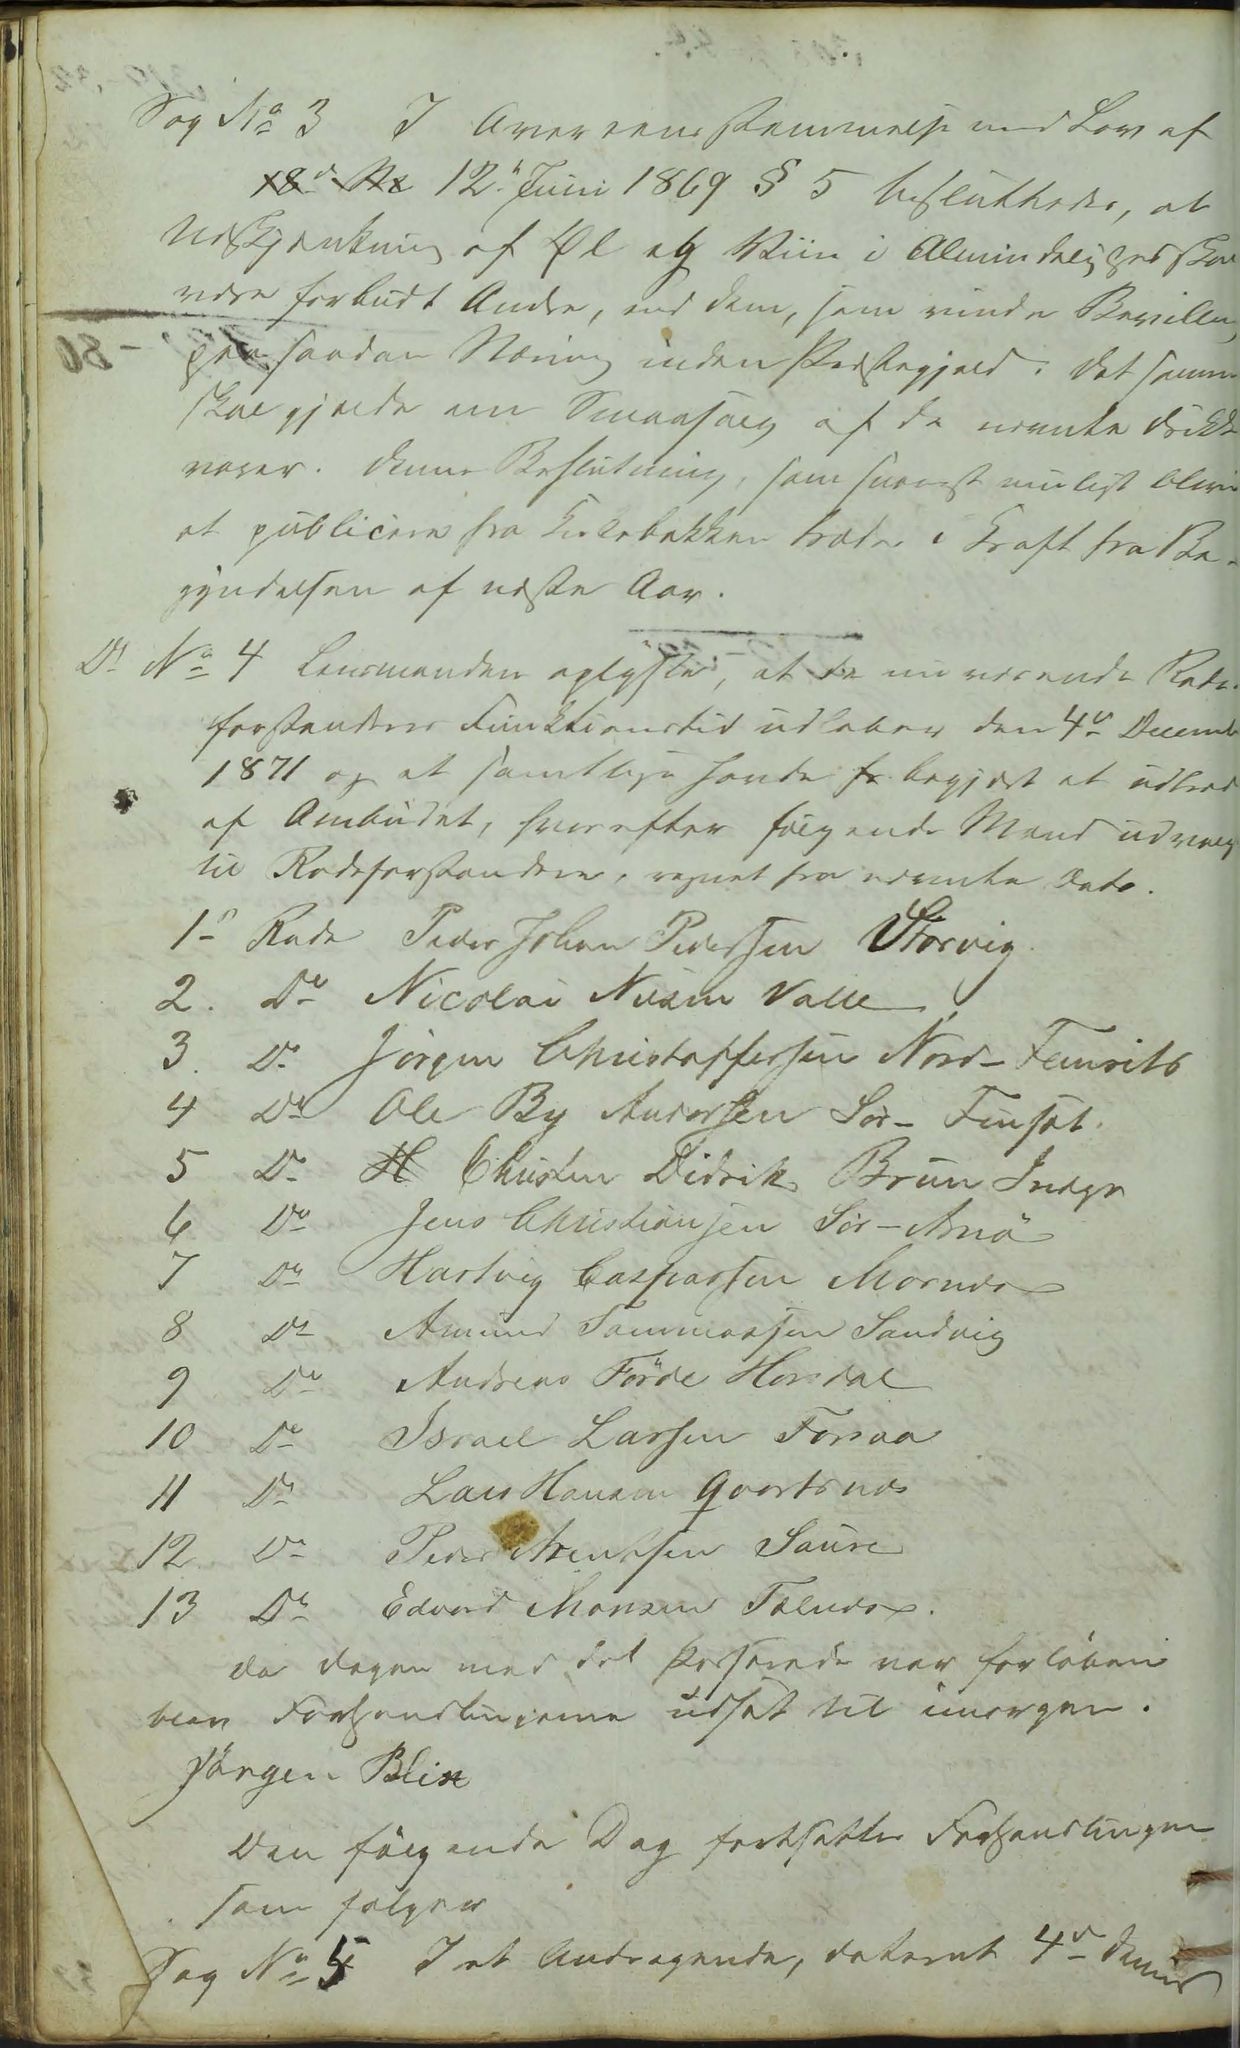 Sag No 3 I Overensstemmelse med Lov af
12te Juni 1869 § 5 besluttedes, at
Udskjænkning af Øl og Viin i Almindelighed skal
være forbudt Andre, end dem, som vinde Bevilling
paa saadan Næring inden Præstegjeld. Det samme
skal gjælde om Smaasalg af de nævnte Drikke
varer. Denne Beslutning, som snarest muligt bliver
at publicere fra Kirkebakken træder i Kraft fra Be-
gyndelsen af næste Aar.
Do No 4 Lensmanden oplyste, at de nuværende Rode-
forstanderes Funktionstid udløber den 4de Decemb
1871 og at samtlige havde begjært at udtræde
af Ombudet, hvorefter følgende Mænd udvalg
til Rodeforstandere, regnet fra nævnte Dato.
1ste Rode Peder Johan Pedersen Storvig
2. Do Nicolai Nilsen Valle
3. Do Jörgen Christoffersen Nord-
4 Do Ole By Andersen Sör-Finset
5 Do Christen Didrik Brun Indyr
6 Do Jens Christiansen Sör-Arnö
7 Do Hartvig Caspersen Mornes
8 Do Amund Tommassen Sandvig
9 Do Andreas Förde Horsdal
10 Do Israel Larsen Forsaa
11 Do Lars Hansen
12 Do Peder Arentsen Saure
13 Do Edvard Monsen
Da Dagen med det Passerede var forløben
blev Forhandlingerne udsat til imorgen.
Jörgen Blix
Den følgende Dag fortsattes Forhandlingerne
som følger
Sag No 5 I et Andragende, dateret 4de dennes